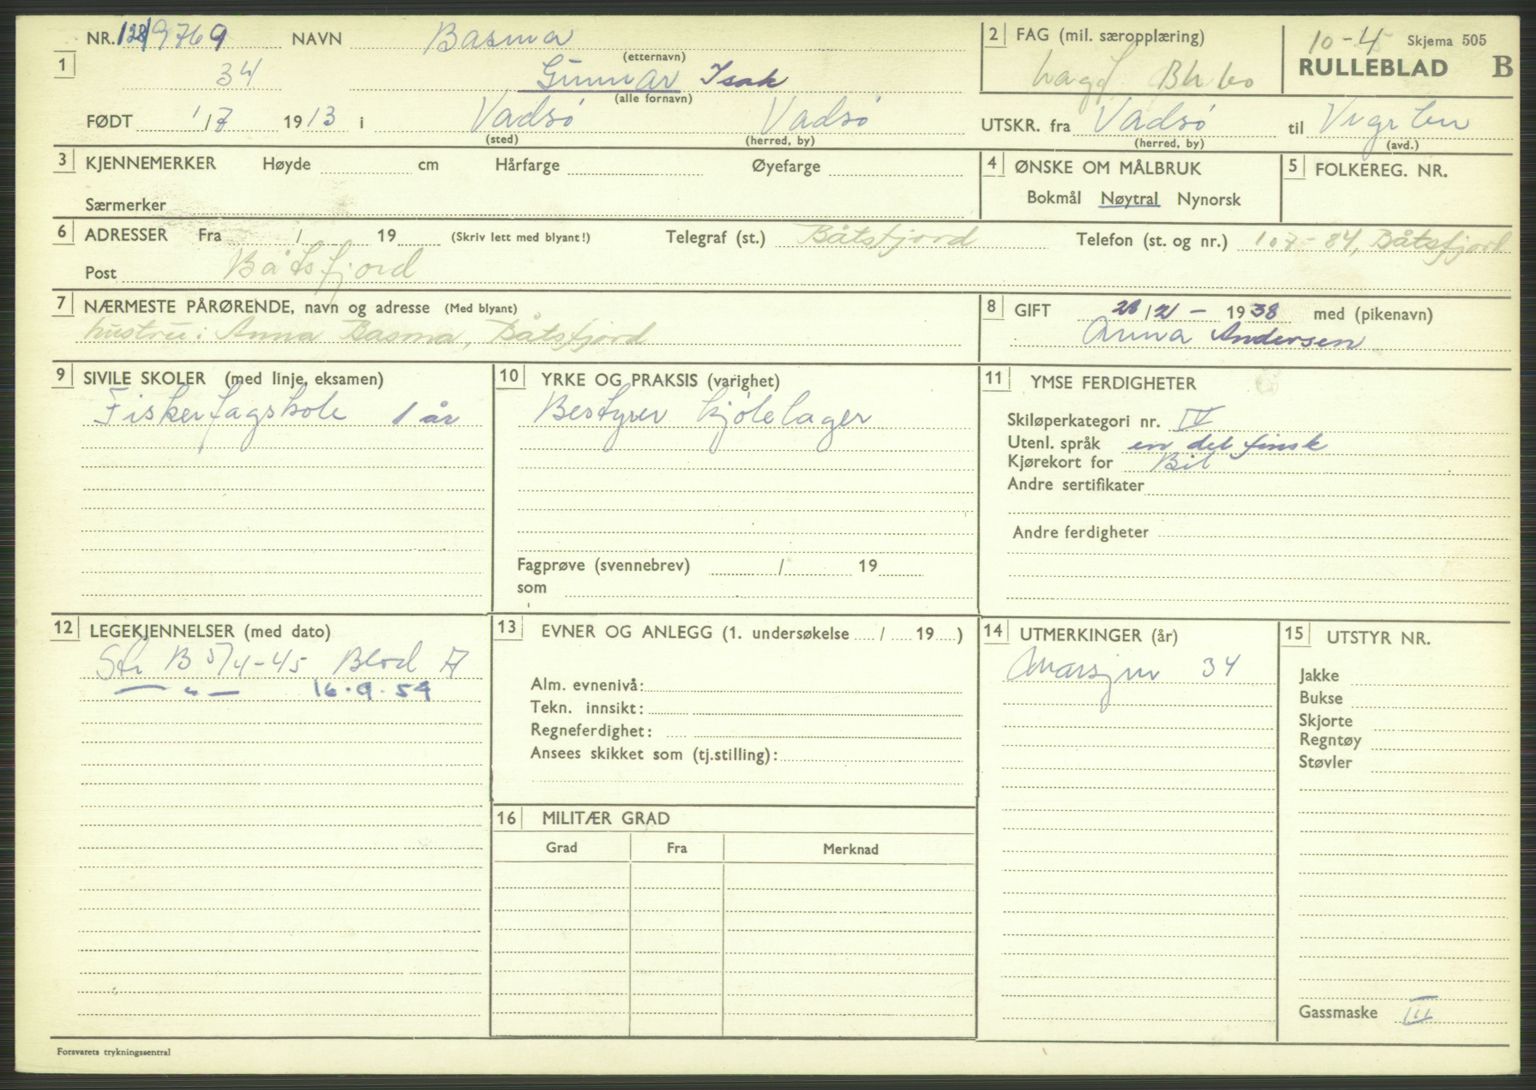 NR. 128/9769 NAVN Basma
10-4 Skjema 505
(etternavn)
2 FAG (mil. særopplæring)
RULLEBLAD B
1
34 Gunnar Isak
(alle fornavn)
Lagf.
FØDT 1/7 1913 i Vadsø Vadsø
(sted) (herred, by)
UTSKR. fra Vadsø til
(herred, by) (avd.)
3 KJENNEMERKER Høyde cm Hårfarge Øyefarge
Særmerker
4 ØNSKE OM MÅLBRUK
Bokmål Nøytral Nynorsk
5 FOLKEREG. NR.
6 ADRESSER Fra / 19 (Skriv lett med blyant!) Telegraf (st.) Båtsfjord Telefon (st. og nr.) 107-84, Båtsfjord
Post Båtsfjord
7 NÆRMESTE PÅRØRENDE, navn og adresse (Med blyant)
hustru: Anna Basma, Båtsfjord
8 GIFT 1938 med (pikenavn)
Anna Andersen
9 SIVILE SKOLER (med linje, eksamen)
Fiskerfagskole 1 år
10 YRKE OG PRAKSIS (varighet)
Bestyrer kjølelager
Fagprøve (svennebrev) / 19
som
11 YMSE FERDIGHETER
Skiløperkategori nr. IV
Utenl. språk en del finsk
Kjørekort for Bil
Andre sertifikater
Andre ferdigheter
12 LEGEKJENNELSER (med dato)
Str B 5/4-45 Blod A
— " — 16.9.59
13 EVNER OG ANLEGG (1. undersøkelse / 19 )
Alm. evnenivå:
Tekn. innsikt:
Regneferdighet:
Ansees skikket som (tj.stilling):
14 UTMERKINGER (år)
34
15 UTSTYR NR.
Jakke
Bukse
Skjorte
Regntøy
Støvler
Gassmaske III
16 MILITÆR GRAD
Grad Fra Merknad
Forsvarets trykningssentral